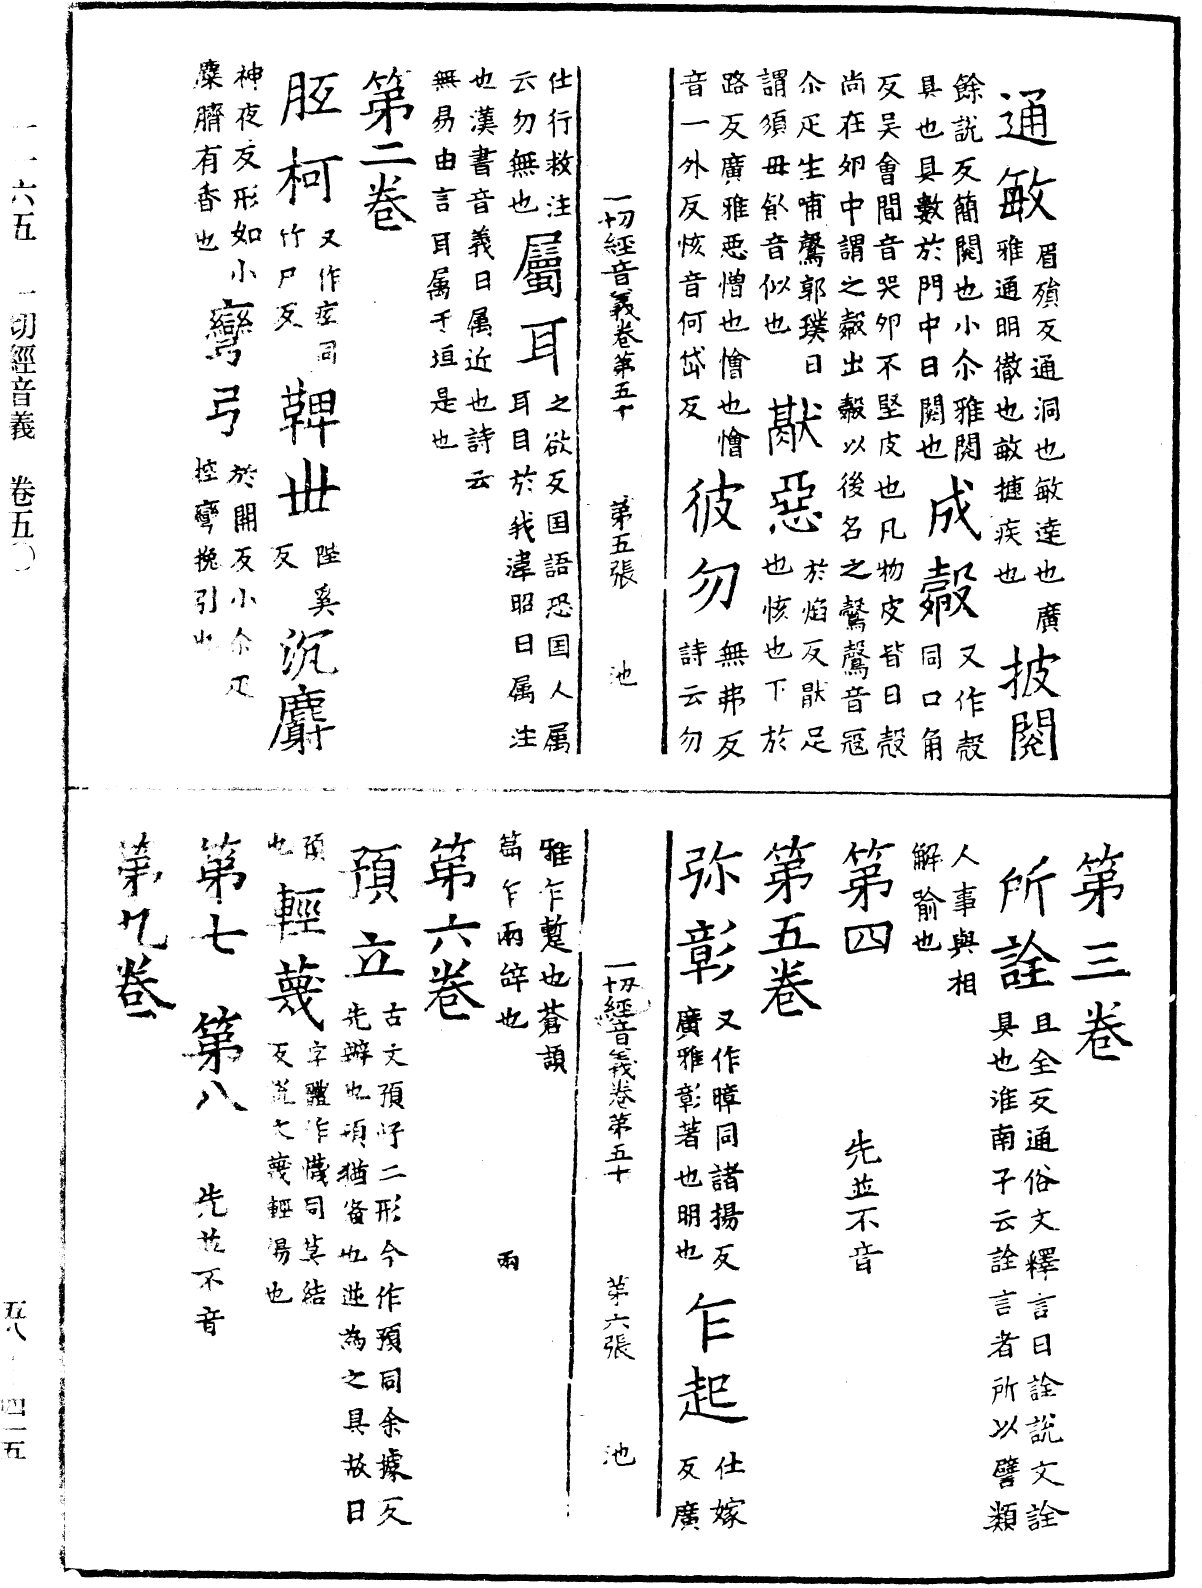 通敏眉殞反通洞也敏達也廣
雅通明徹也敏揵疾也披閱
餘說反簡閱也小尒雅閱
具也具數於門中曰閱也成㲉又作殼同口角
反吳會間音哭卵不堅皮也凡物皮皆曰殼
尚在卵中謂之㲉出㲉以後名之鷇鷇音寇
尒疋生哺鷇郭璞曰
謂須母飤音似也猒惡於焰反猒足也㤥也下於
路反廣雅惡憎也憎也憎
音一外反㤥音何岱反彼勿無弗反詩云勿
一切經音義卷第五十 第五張 池
仕行救注
云勿無也屬耳之欲反国語恐国人属
耳目於我㵮昭曰属注
也漢書音義曰属近也詩云
無易由言耳属于垣是也
第二卷
胵柯又作㾃同竹尸反鞞丗陛奚反沉麝
神夜反形如小
麋臍有香也彎弓於開反小尒疋
控彎挽引也
第三卷
所詮且全反通俗文釋言曰詮說文詮
具也淮南子云詮言者所以譬類
人事與相
解喻也
第四 先並不音
第五卷
弥彰又作暲同諸揚反
廣雅彰著也明也乍起仕嫁反廣
一切經音義卷第五十 第六張 池
雅乍蹔也蒼頡
篇乍兩辝也 兩
第六卷
預立古文預忬二形今作預同余據反
先辦也預猶俻也逆為之具故曰
預也輕蔑字體作懱同莫結
反說文蔑輕傷也
第七 第八 先並不音
第九卷
一一六五 一切經音義 卷五〇
五八·四一五